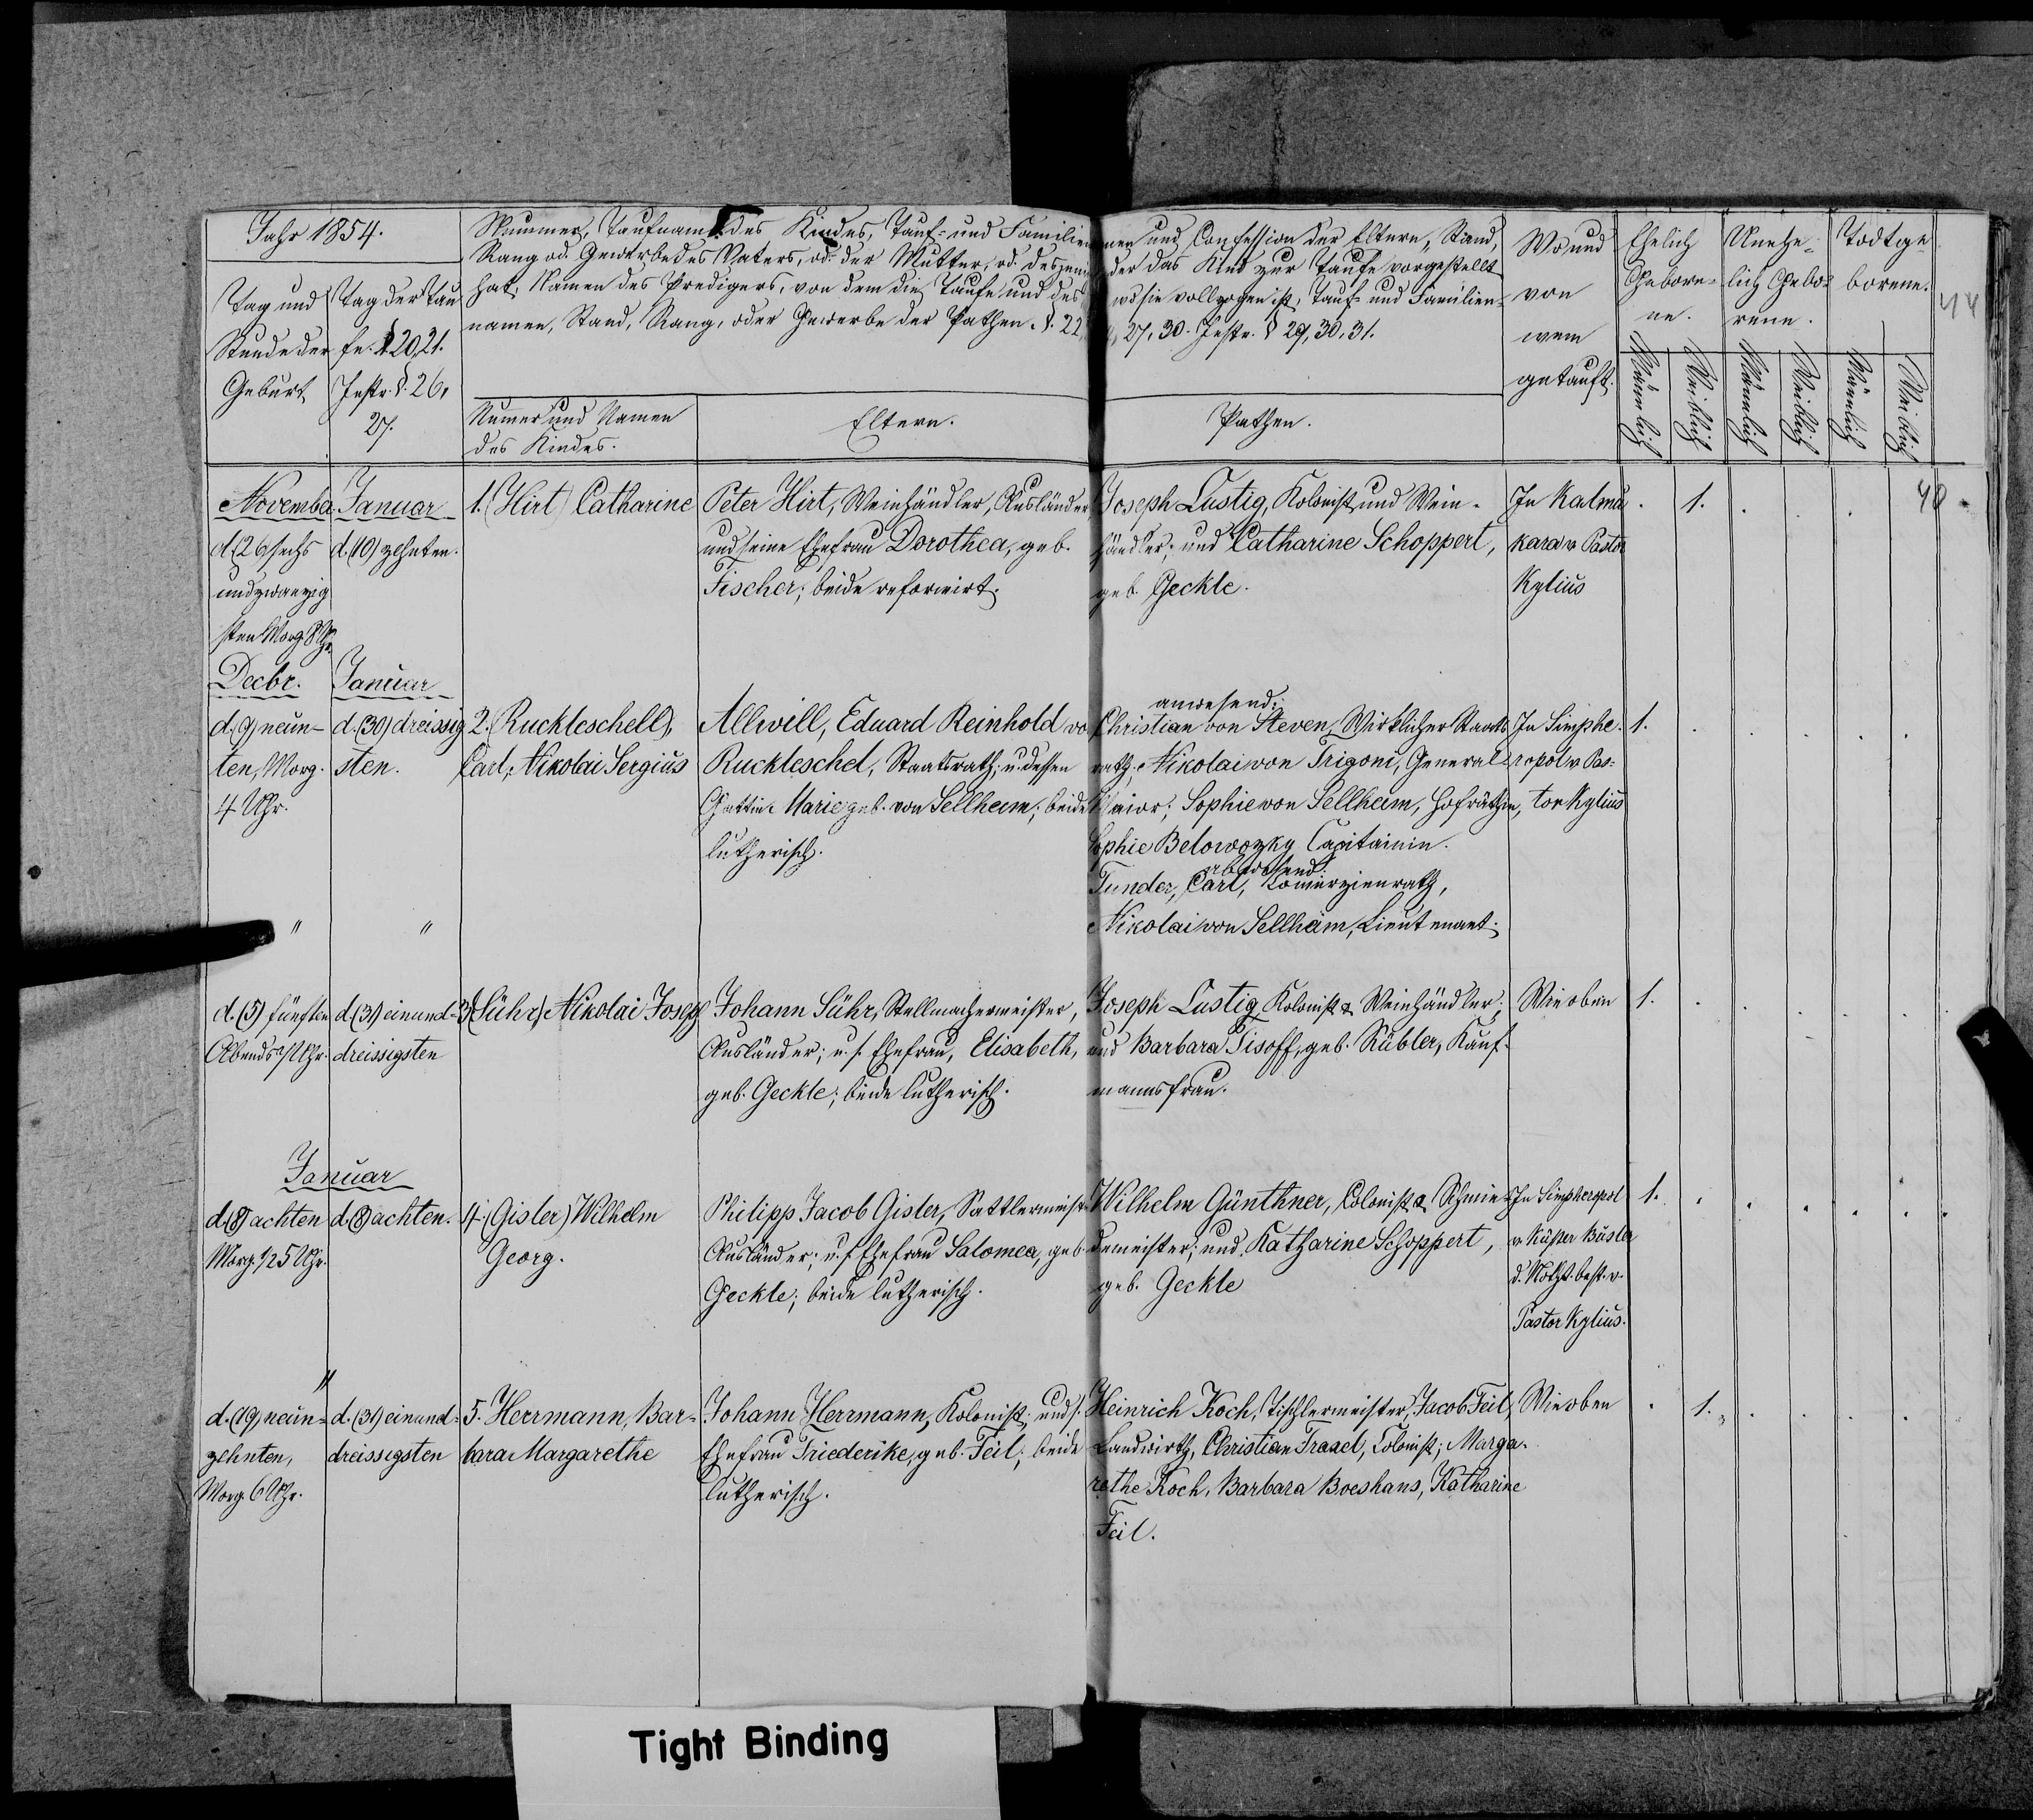 Jahr 1854.
Tag und
Stunde der
Geburt
Tag der Tau
fe. § 20, 21.
Instr. § 26,
27.
Nummer, Taufname des Kindes, Tauf- und Familien
Rang od. Gewerbe des Vaters, od. der Mutter, od. desjeni
hat, Namen des Predigers, von dem die Taufe und des
namen, Stand, Rang, oder Gewerbe der Pathen. §. 22,
Numer und Namen
des Kindes.
Eltern.
men und Confession der Eltern, Stand,
der das Kind zur Taufe vorgestellt
wo sie vollzogen ist, Tauf- und Familien-
27, 30. Instr. § 29, 30, 31.
Pathen.
Wo und
von
wem
getauft.
Ehelich
Gebore-
ne.
Unehe-
lich Gebo-
rene.
Todtge
borene.
Männlich
Weiblich
Männlich
Weiblich
Männlich
Weiblich
44
November
d. (26) sechs
undzwanzig
sten Morg. 8 Uhr
Januar
d. (10) zehnten.
1. (Hirt) Catharine
Peter Hirt, Weinhändler, Ausländer
und seine Ehefrau Dorothea, geb.
Fischer; beide reformirt.
Joseph Lustig, Kolonist und Wein-
händler; und Catharine Schoppert,
geb. Geckle.
In Kalmu
kara v. Pastor
Kylius
1.
40
Decbr.
d. (9) neun-
ten, Morg.
4 Uhr.
Januar
d. (30) dreissig
sten.
2. (Ruckteschell),
Carl, Nikolai Sergius
Allwill, Eduard Reinhold vo
Ruckteschel, Staatsrath; u. dessen
Gattin Marie geb. von Sellheim; beide
lutherisch.
anwesend:
Christian von Steven, Wirklicher Staats
rath, Nikolai von Trigoni, General-
Maior; Sophie von Sellheim, Hofräthin,
Sophie Belowozky Capitainin.
abwesend:
Tunder, Carl, Komerzienrath,
Nikolai von Sellheim, Lieutenant.
In Simphe-
ropol v. Pas-
tor Kylius
1.
"
"
d. (5) fünften
Abends 7 Uhr.
d. (31) einund-
dreissigsten
3. (Sühr) Nikolai Joseph
Johann Sühr, Stellmachermeister,
Ausländer; u. s. Ehefrau, Elisabeth,
geb. Geckle; beide lutherisch.
Joseph Lustig Kolonist & Weinhändler;
und Barbara Tisoff, geb. Kübler, Kauf-
mannsfrau.
Wie oben
1.
Januar
d. (8) achten
Morg. 1/2 5 Uhr.
d. (8) achten.
4. (Gisler) Wilhelm
Georg.
Philipp Jacob Gisler, Sattlermeist
Ausländer; u. s. Ehefrau Salomea, geb.
Geckle; beide lutherisch.
Wilhelm Günthner, Colonist & Schmie-
demeister; und Katharine Schoppert,
geb. Geckle
In Simpheropol
v. Küster Büsler
d. Notht. best. v.
Pastor Kylius.
1.
"
d. (19) neun-
zehnten,
Morg. 6 Uhr.
d. (31) einund-
dreissigsten
5. Herrmann, Bar-
bara Margarethe
Johann Herrmann, Kolonist; und s.
Ehefrau Friederike, geb. Feil; beide
lutherisch.
Heinrich Koch, Tischlermeister, Jacob Feil,
Landwirth, Christian Trasel, Colonist; Marga-
rethe Koch, Barbara Boeshans, Katharine
Feil.
Wie oben
1.
Tight Binding